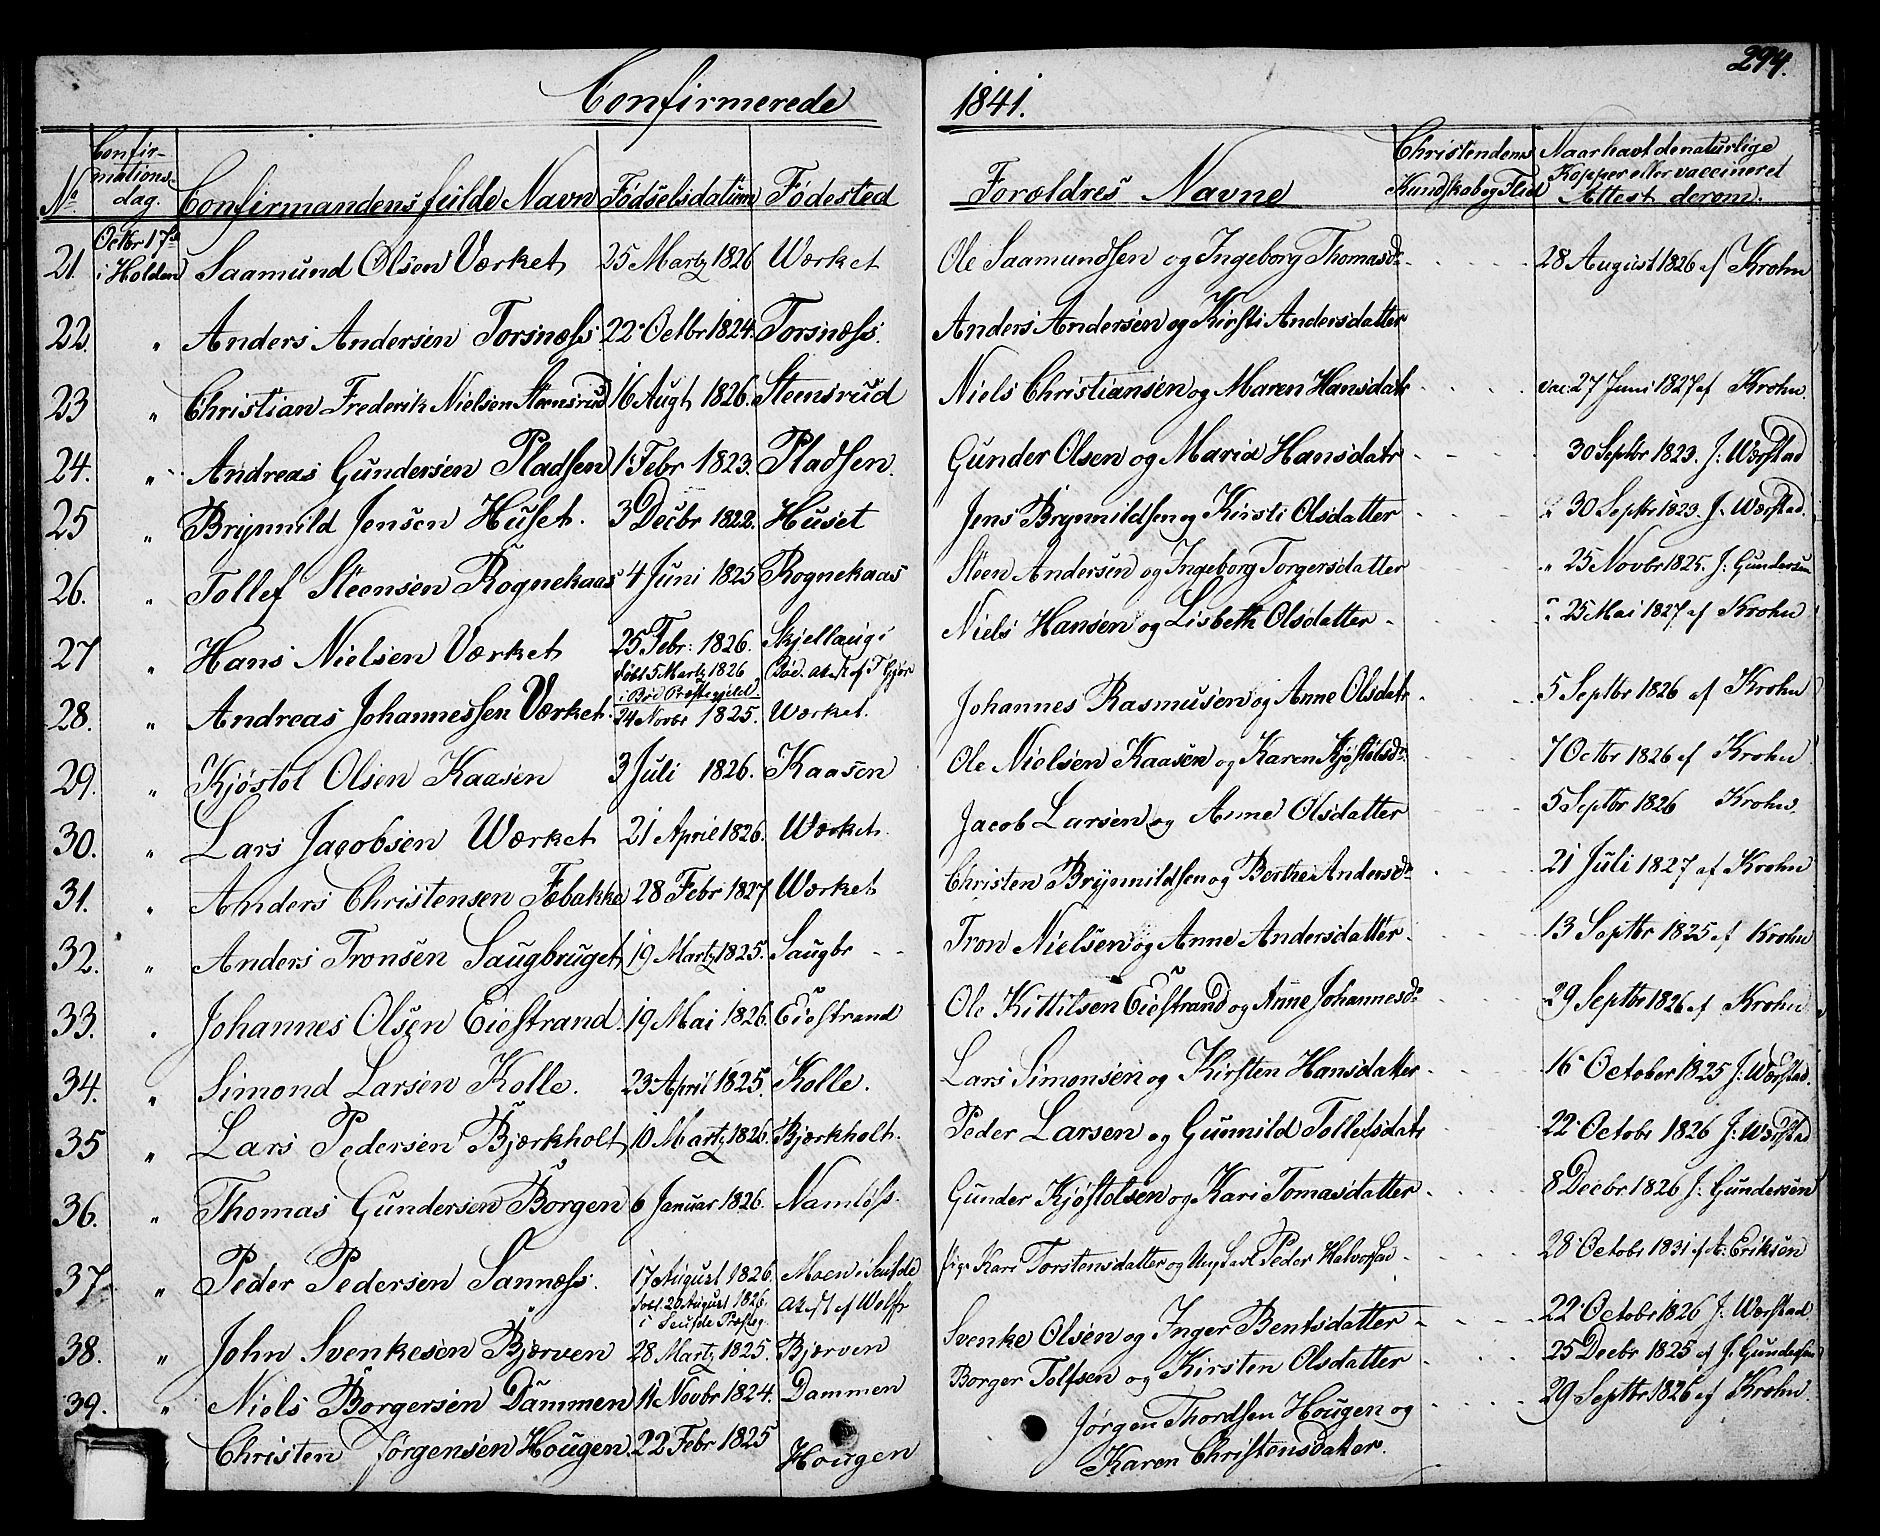 294.
Confirmerede 1841.
No Confirmationsdag. Confirmandens fulde Navn Fødselsdatum Fødested Forældres Navne Christendoms Kundskab og Flid Naar havt de naturlige Kopper eller vaccineret Attest derom.
21. Octbr 17de i Holden Saamund Olsen Værket 25 Martz 1826 Værket Ole Saamundsen og Ingeborg Thomasdr 28 August 1826 af Krohn
22. " Anders Andersen Torsnæss 22 Octbr 1824. Torsnæss. Anders Andersen og Kirsti Andersdatter
23 " Christian Frederik Nielsen Stensrud 16 Augt 1826. Steensrud Niels Christiansen og Maren Hansdatr vac: 27 Juni 1827 af Krohn.
24. " Andreas Gundersen Pladsen 1 Febr 1823. Pladsen. Gunder Olsen og Maria Hansdatr 30 Septbr 1823. J: Værstad
25 " Brynnild Jensen Huset. 3 Decbr 1822. Huset Jens Brynnildsen og Kirsti Olsdatter 30 Septbr 1823. J. Værstad.
26. " Tollef Steensen Rognekaas 4 Juni 1825 Rognekaas Steen Andersen og Ingeborg Torgersdatter " 25 Novbr 1825. J: Gundersen
27 " Hans Nielsen Værket 25 Febr: 1826. Skjellaug i Niels Hansen og Lisbeth Olsdatter " 25 Mai 1827 af Krohn
døbt 5 Martz 1826 Bøe. at.st. af
i Bøe Præstegjeld.
28. " Andreas Johannessen Værket. 24 Novbr 1825. Værket. Johannes Rasmusen og Anne Olsdatr 5 Septbr 1826 af Krohn
29. " Kjøstol Olsen Kaasen 3 Juli 1826. Kaasen Ole Nielsen Kaasen og Karen Kjøstolsdr 7 Octbr 1826 af Krohn
30. " Lars Jacobsen Værket 21 April 1826. Værket. Jacob Larsen og Anne Olsdatter 5 Septbr 1826 Krohn.
31. " Anders Christensen Fæbakke 28 Febr 1827 Værket Christen Brynnildsen og Berthe Andersdr 21 Juli 1827 af Krohn
32. " Anders Tronsen Saugbruget 19 Martz 1825. Saugbr - - Tron Nielsen og Anne Andersdatter 13 Septbr 1825 af Krohn
33. " Johannes Olsen Eiestrand. 19 Mai 1826. Eiestrand Ole Kittilsen Eiestrand og Anne Johannesdr 29 Septbr 1826 af Krohn
34. " Simond Larsen Kolle. 23 April 1825. Kolle. Lars Simonsen og Kirsten Hansdatter 16 October 1825 J: Værstad.
35 " Lars Pedersen Bjærkholt 10 Martz 1826. Bjærkholt. Peder Larsen og Gunnild Tollefsdatr 22 Octobr 1826 J: Værstad
36. " Thomas Gundersen Borgen 6 Januar 1826. Namløss. Gunder Kjøstolsen og Kari Tomasdatter 8 Decbr 1826 J. Gundersen
37. " Peder Pedersen Sannæss. 17 August 1826. Moen i Seufde pige Kari Torstensdatter og Ungkarl Peder Halvorsen 28 Octobr 1831 af A: Eriksen
døbt. 20 August 1826. at.st. af Wolff
i Seufde Præsteg.
38. " John Svenkesen Bjærven 28 Martz 1825. Bjærven Svenke Olsen og Inger Bentsdatter 22 October 1826 J. Værstad
39. " Niels Borgersen Dammen 11 Novbr 1824. Dammen Borger Tolfsen og Kirsten Olsdatter 25 Decbr 1825 af J. Gundersen
Christen Jørgensen Hougen. 22 Febr 1825 Hougen Jørgen Thordsen Hougen og 29 Septbr 1826 af Krohn
Karen Christensdatter.